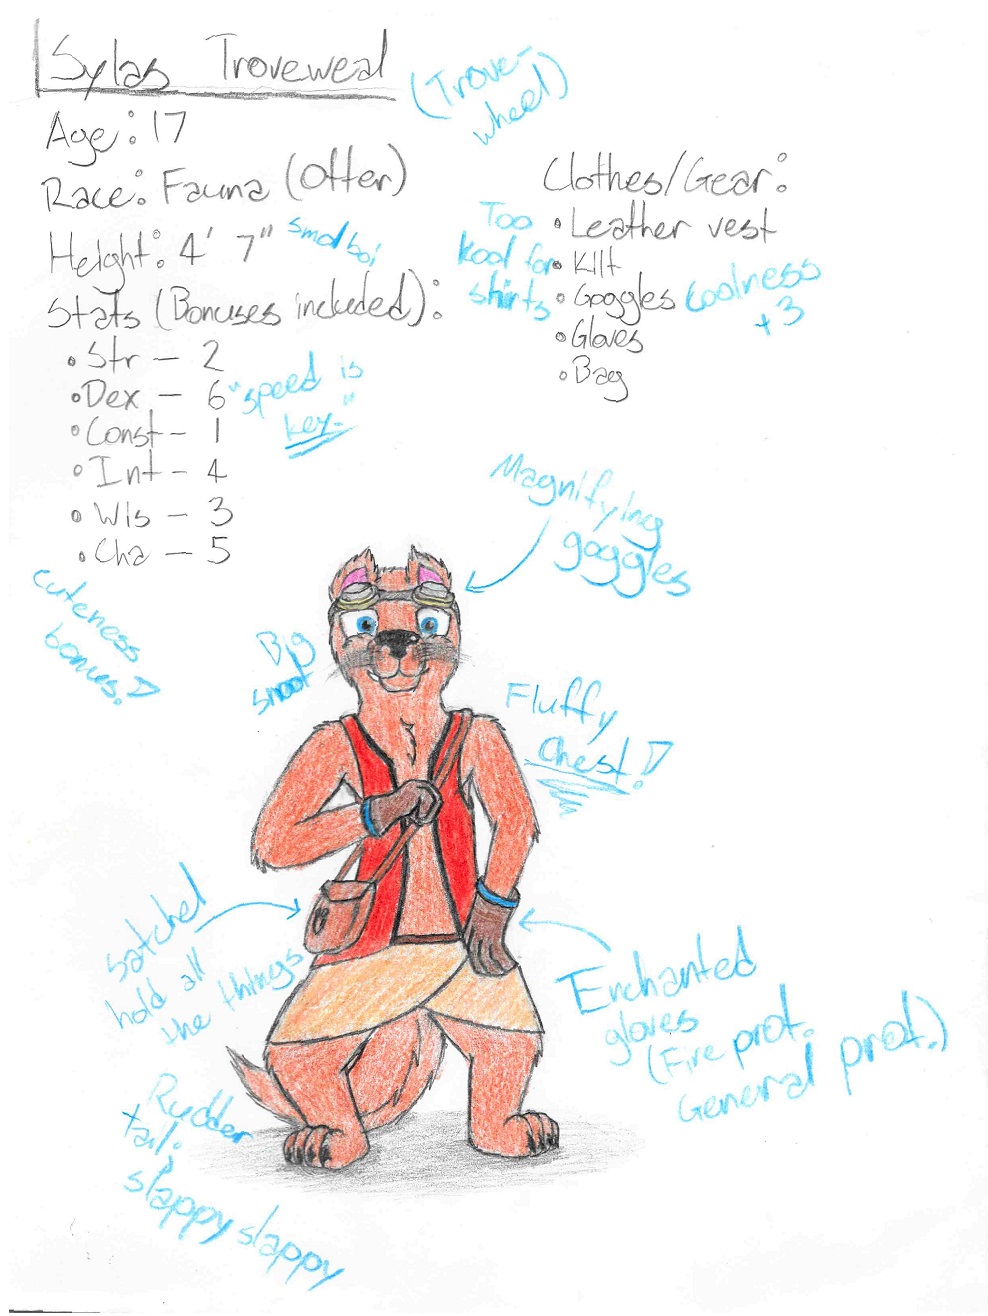 Sylas Troveweal
(Trove-
wheel)
Age: 17
Race: Fauna (Otter)
Height: 4' 7"
smol boi
Stats (Bonuses included):
• Str – 2
• Dex – 6
"speed is
key."
• Const – 1
• Int – 4
• Wis – 3
• Cha – 5
cuteness
bonus!
Clothes/Gear:
• Leather vest
• Kilt
• Goggles
• Gloves
• Bag
Too
kool for
shirts
coolness
+3
Magnifying
goggles
Big
snoot
Fluffy
Chest!
Satchel
hold all
the things
Enchanted
gloves
(Fire prot.
General prot.)
Rudder
tail;
slappy slappy